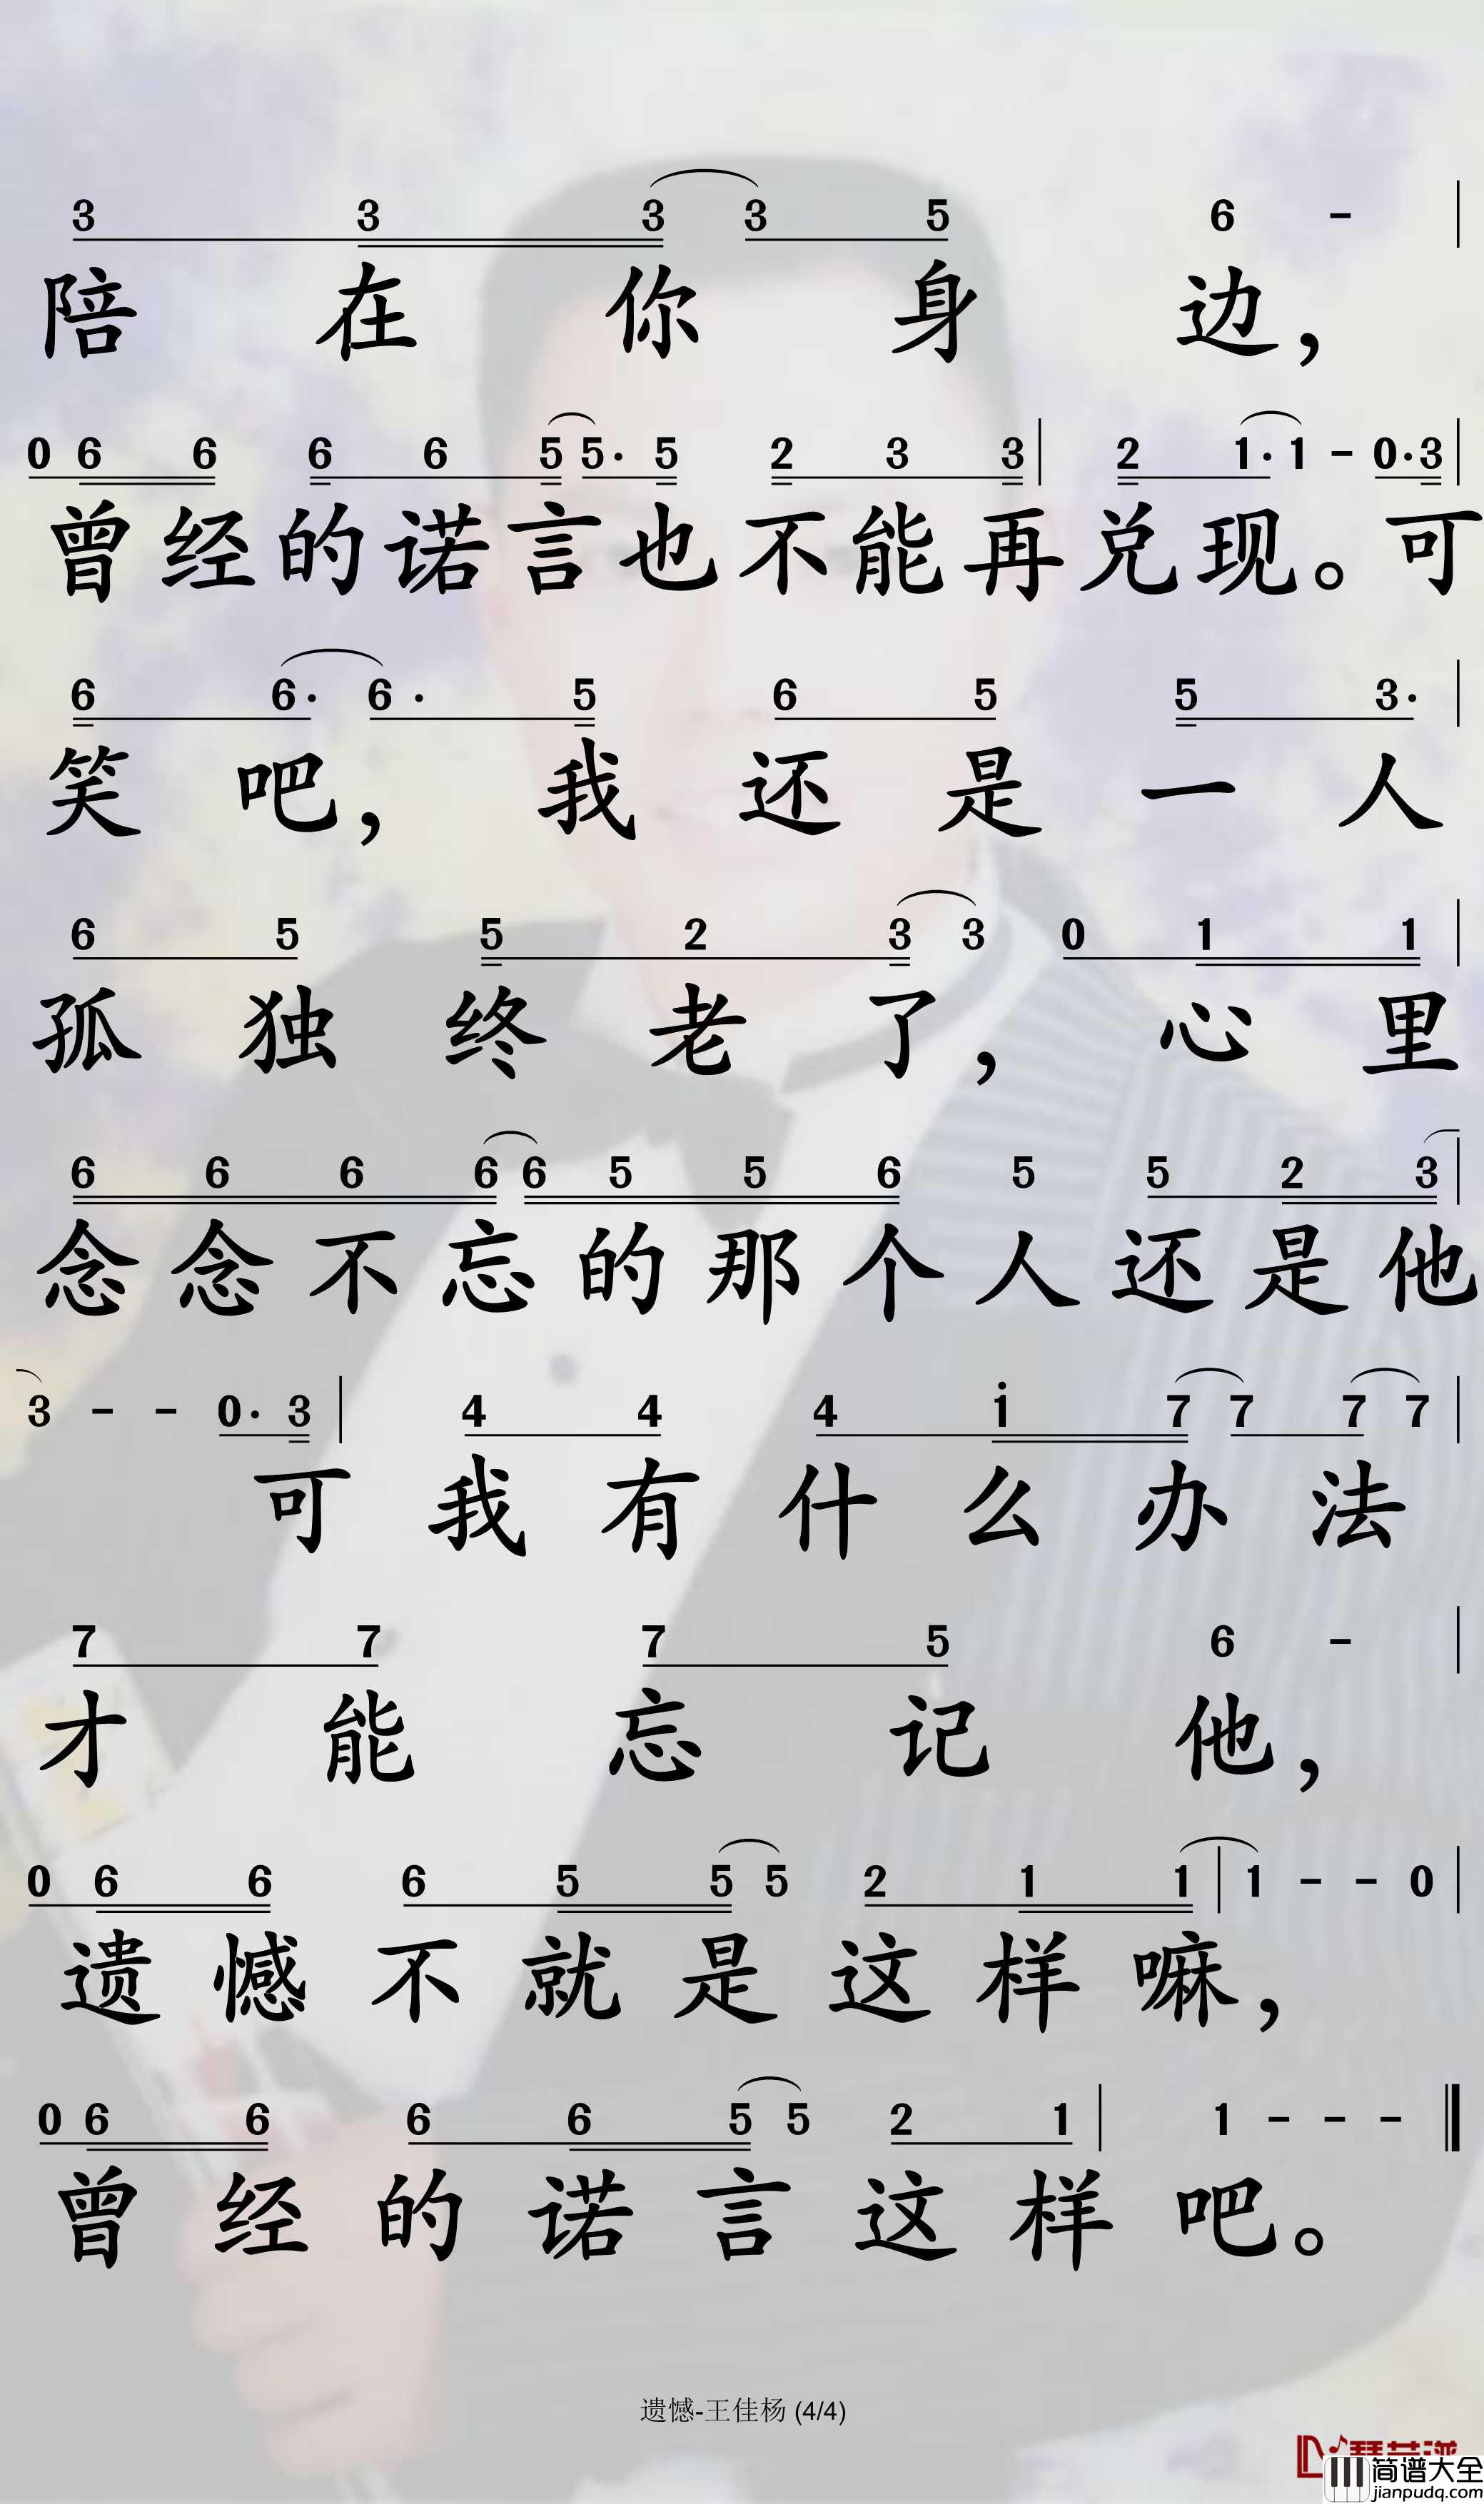 3 3 3 3 5 6 - |
陪在你身边，
0 6 6 6 6 5 5· 5 2 3 3 | 2 1· 1 - 0· 3 |
曾经的诺言也不能再兑现。可
6 6· 6· 5 6 5 5 3· |
笑吧，我还是一人
6 5 5 2 3 3 0 1 1 |
孤独终老了，心里
6 6 6 6 6 5 5 6 5 5 2 3 |
念念不忘的那个人还是他
3 - - 0· 3 | 4 4 4 i 7 7 7 7 |
可我有什么办法
7 7 7 5 6 - |
才能忘记他，
0 6 6 6 5 5 5 2 1 1 | 1 - - 0 |
遗憾不就是这样嘛，
0 6 6 6 6 5 5 2 1 | 1 - - - ‖
曾经的诺言这样吧。
遗憾-王佳杨 (4/4)
简谱大全
jianpudq.com